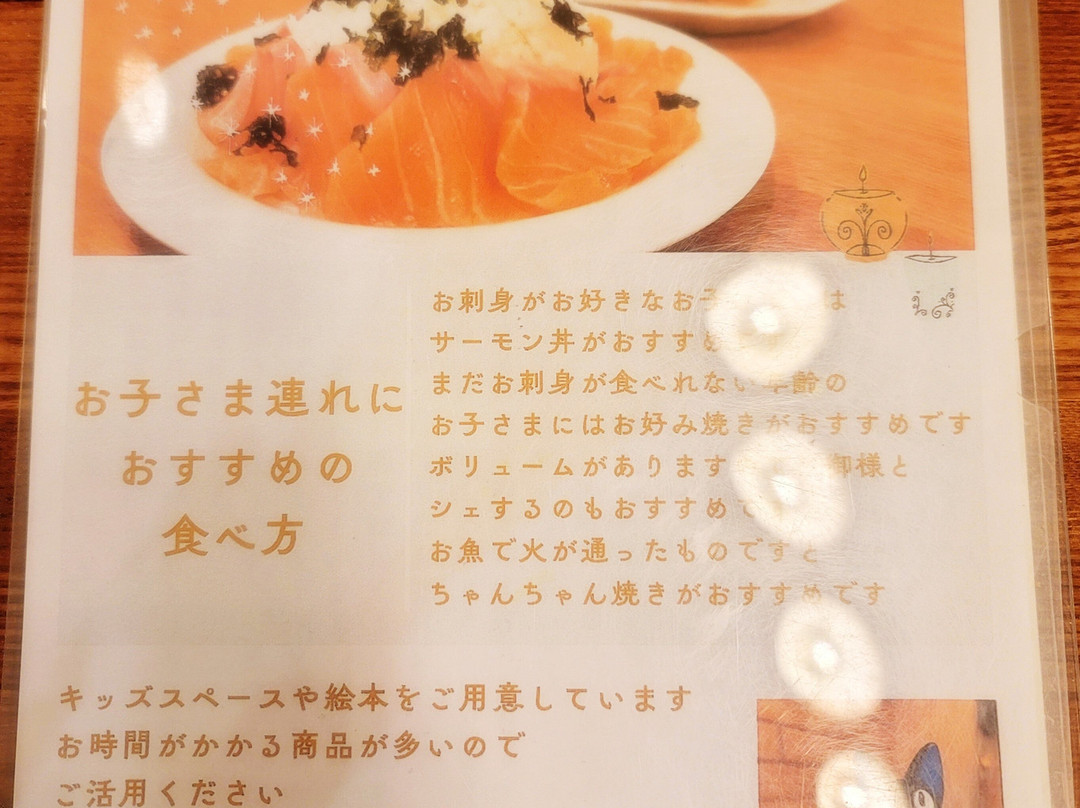 お子さま連れに
おすすめの
食べ方
お刺身がお好きなお子 は
サーモン丼がおすすめ
まだお刺身が食べれない年齢の
お子さまにはお好み焼きがおすすめです
ボリュームがあります 御様と
シェするのもおすすめで
お魚で火が通ったものですと
ちゃんちゃん焼きがおすすめです
キッズスペースや絵本をご用意しています
お時間がかかる商品が多いので
ご活用ください